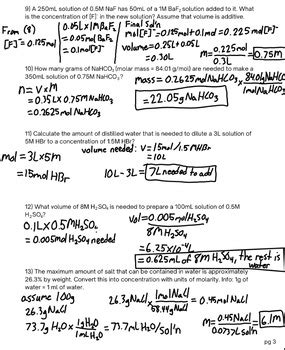 9) A 250mL solution of 0.5M NaF has 50mL of a 1M BaF₂ solution added to it. What
is the concentration of [F]⁻ in the new solution? Assume that volume is additive.
From (8)
[F⁻] = 0.125mol
0.05L x 1M BaF₂
= 0.05mol BaF₂
= 0.1mol F⁻
Final Soln
mol[F⁻] = 0.125mol + 0.1mol = 0.225 mol[F⁻]
volume = 0.25L + 0.05L
= 0.30L
M = 0.225mol / 0.3L = 0.75M
10) How many grams of NaHCO₃ (molar mass = 84.01 g/mol) are needed to make a
350mL solution of 0.75M NaHCO₃?
n = V x M
= 0.35L x 0.75M NaHCO₃
= 0.2625 mol NaHCO₃
mass = 0.2625 mol NaHCO₃ x 84.01g NaHCO₃ / 1mol NaHCO₃
= 22.05g NaHCO₃
11) Calculate the amount of distilled water that is needed to dilute a 3L solution of
5M HBr to a concentration of 1.5M HBr?
mol = 3L x 5M
= 15mol HBr
volume needed: V = 15mol / 1.5M HBr
= 10L
10L - 3L = 7L needed to add
12) What volume of 8M H₂SO₄ is needed to prepare a 100mL solution of 0.5M
H₂SO₄?
0.1L x 0.5M H₂SO₄
= 0.005mol H₂SO₄ needed
Vol = 0.005mol H₂SO₄ / 8M H₂SO₄
= 6.25x10⁻⁴L
= 0.625mL of 8M H₂SO₄, the rest is
water
13) The maximum amount of salt that can be contained in water is approximately
26.3% by weight. Convert this into concentration with units of molarity. Info: 1g of
water = 1 mL of water.
assume 100g
26.3g NaCl
26.3g NaCl x 1mol NaCl / 58.44g NaCl = 0.45mol NaCl
73.7g H₂O x 1g H₂O / 1mL H₂O = 73.7mL H₂O/sol'n
M = 0.45mol NaCl / 0.0737L sol'n = 6.1M
pg 3